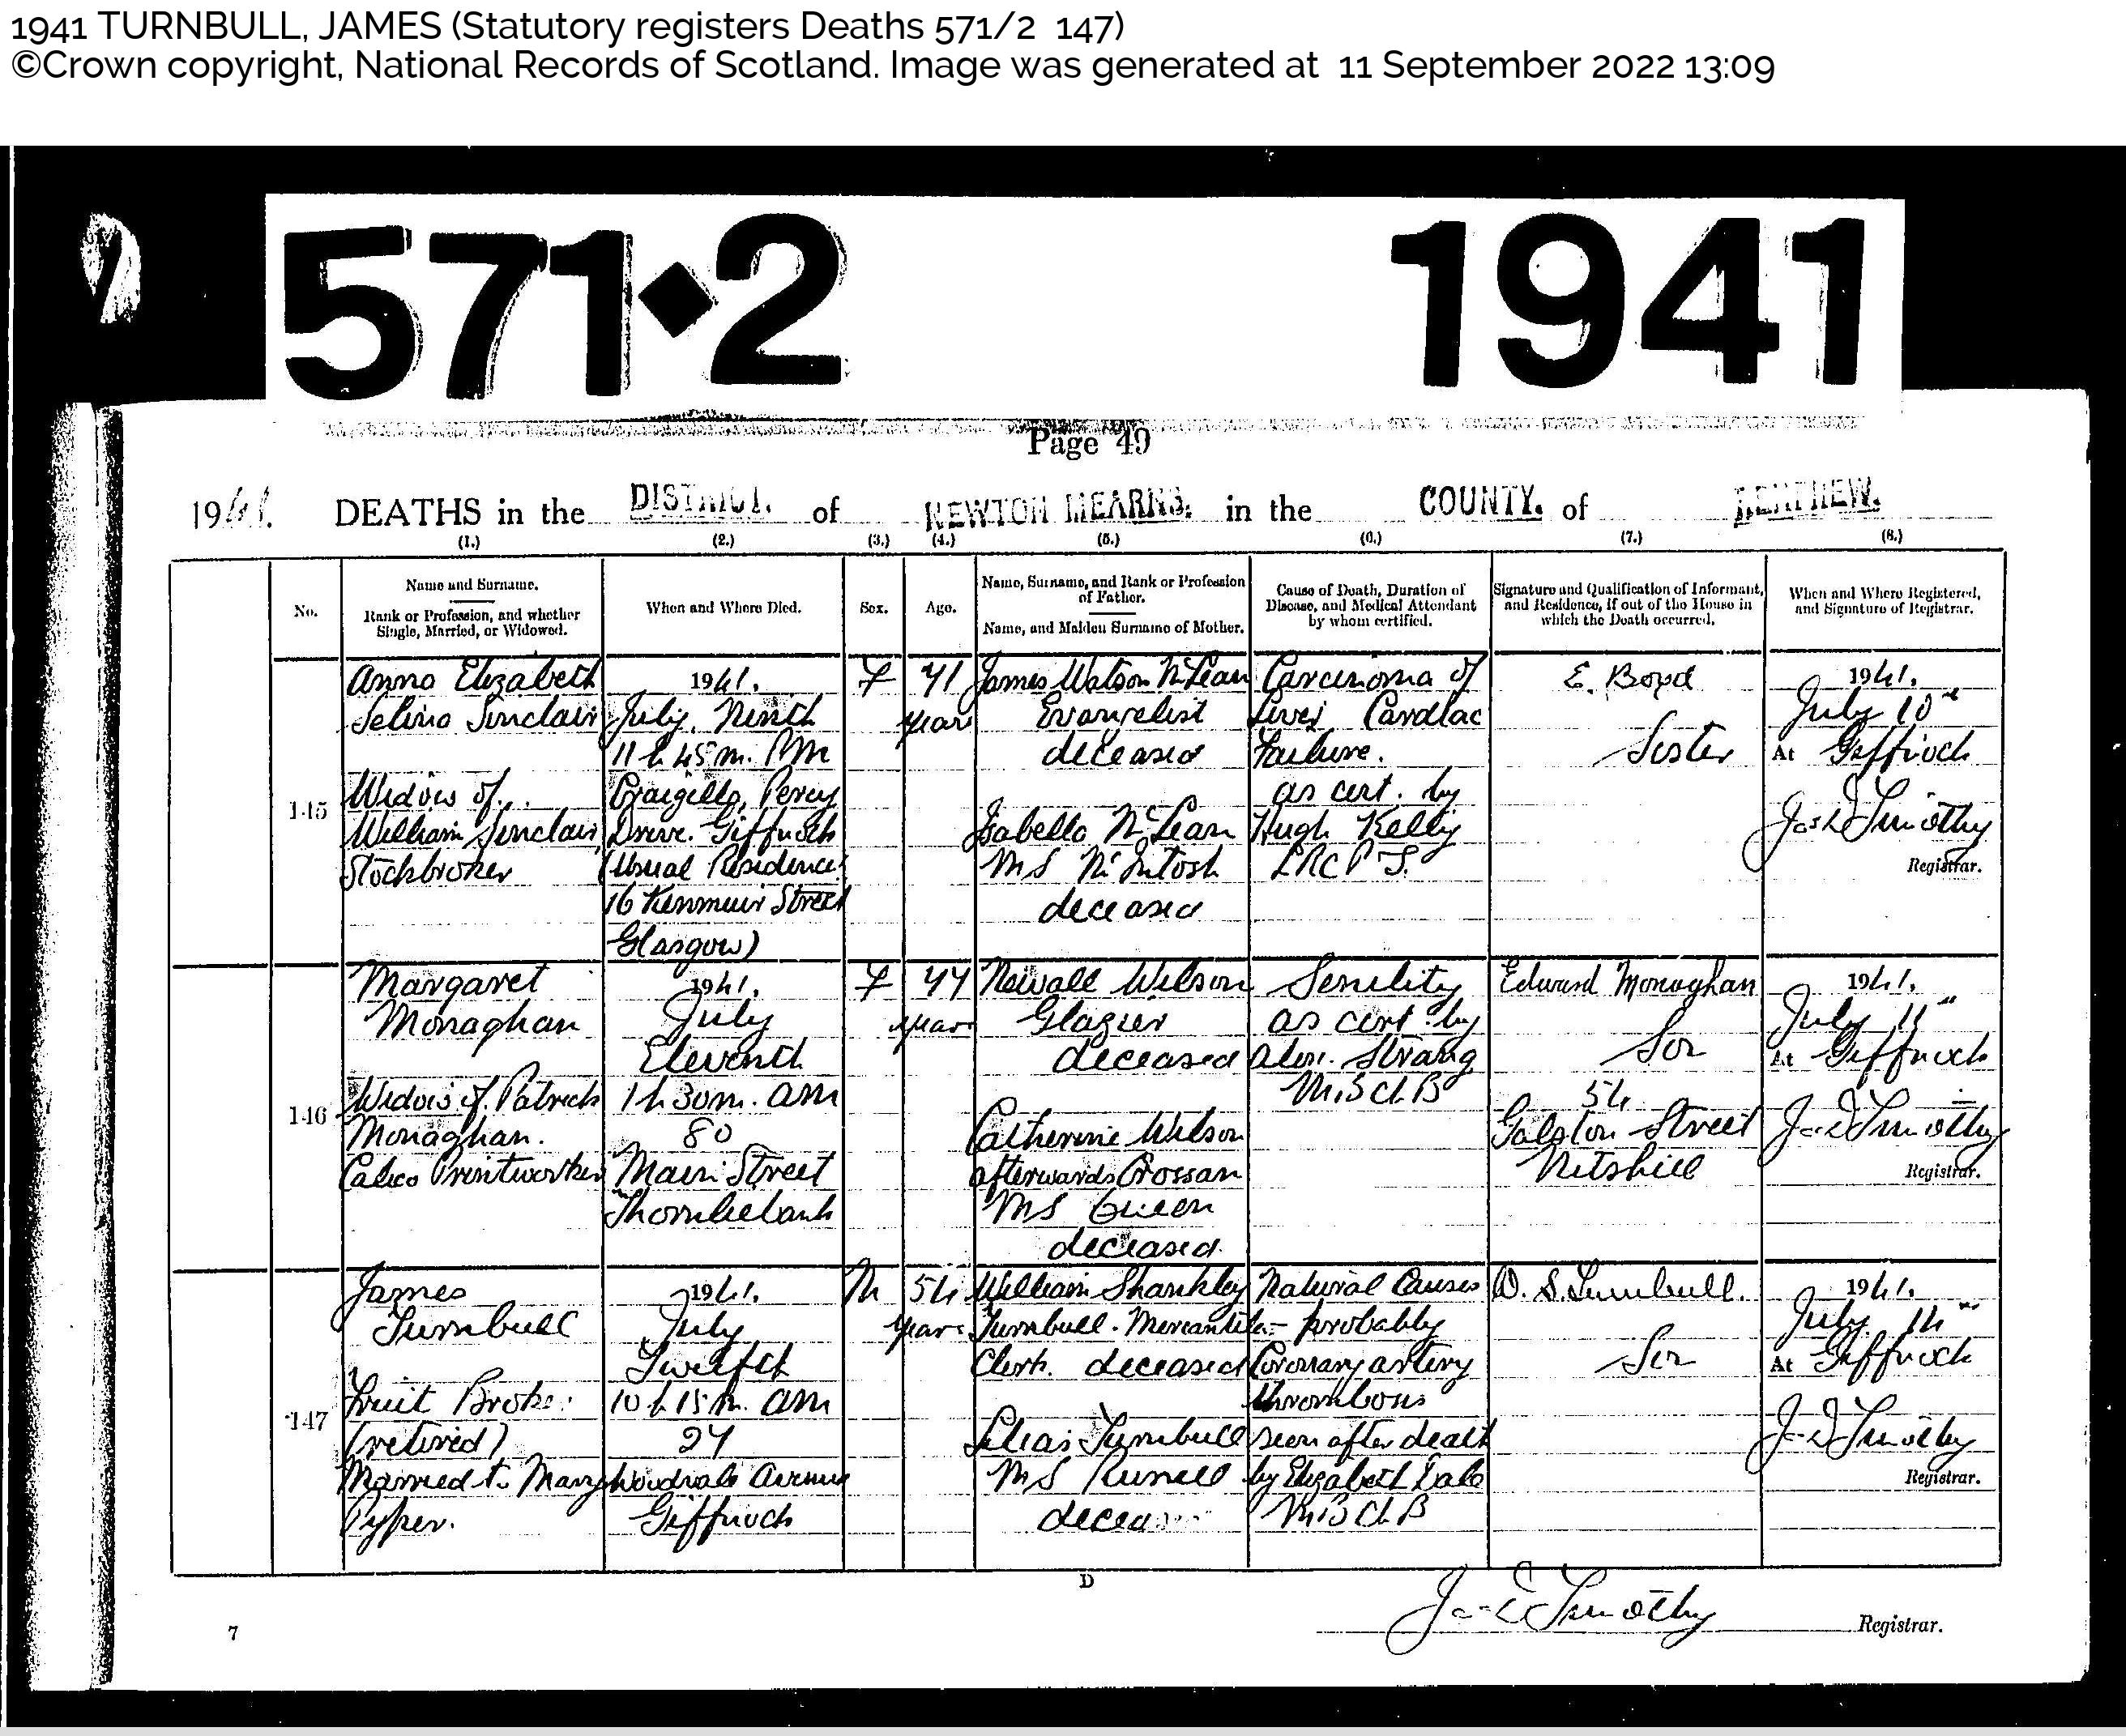 1941 TURNBULL, JAMES (Statutory registers Deaths 571/2 147)
©Crown copyright, National Records of Scotland. Image was generated at 11 September 2022 13:09
571·2 1941
Page 49
1941. DEATHS in the DISTRICT. of NEWTON MEARNS. in the COUNTY. of RENFREW.
(1.) (2.) (3.) (4.) (5.) (6.) (7.) (8.)
No.
Name and Surname.
Rank or Profession, and whether
Single, Married, or Widowed.
When and Where Died.
Sex.
Age.
Name, Surname, and Rank or Profession
of Father.
Name, and Maiden Surname of Mother.
Cause of Death, Duration of
Disease, and Medical Attendant
by whom certified.
Signature and Qualification of Informant,
and Residence, if out of the House in
which the Death occurred.
When and Where Registered,
and Signature of Registrar.
145
Elizabeth
Sinclair
Widow of
William Sinclair
Stockbroker
1941.
July Ninth
11 h 45 m. PM
Percy
Drive. Giffnock
(Usual Residence
16 Kenmuir Street
Glasgow)
F
71
years
James Watson McLean
Evangelist
deceased
Isabella McLean
MS McIntosh
deceased
Carcinoma of
Liver Cardiac
Failure.
as cert. by
Hugh Kelly
LRCPS.
E. Boyd
Sister
1941.
July 10th
At Giffnock
Timothy
Registrar.
146
Margaret
Monaghan
Widow of Patrick
Monaghan.
Calico Printworker
1941.
July
Eleventh
1 h 30 m. AM
80
Main Street
Thornliebank
F
77
years
Newall Wilson
Glazier
deceased
Catherine Wilson
afterwards Crossan
MS Queen
deceased
Senility
as cert. by
Alex. Strang
M.B Ch B
Edward Monaghan
Son
54
Galston Street
Nitshill
1941.
July 11th
At Giffnock
Timothy
Registrar.
147
James
Turnbull
Fruit Broker
(retired)
Married to Mary
Pyper.
1941.
July
Twelfth
10 h 15 m. AM
27
Woodvale Avenue
Giffnock
M
54
years
William Shankley
Turnbull. Mercantile
Clerk. deceased
Lilias Turnbull
MS Russell
deceased
Natural Causes
- probably
Coronary artery
thrombosis
seen after death
by Elizabeth Dale
M B Ch B
W. S. Turnbull.
Son
1941.
July 14th
At Giffnock
Timothy
Registrar.
D
Timothy
Registrar.
7